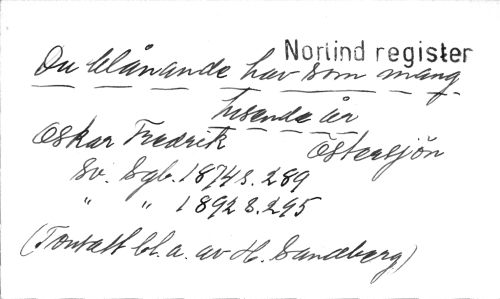 Norlind register
Du blånande hav som mång
tusende år
Oskar Fredrik Östersjön
Sv. Sgb. 1874 s. 289
" " 1892 s. 295
(Tonsatt bl. a. av H. Sandberg)